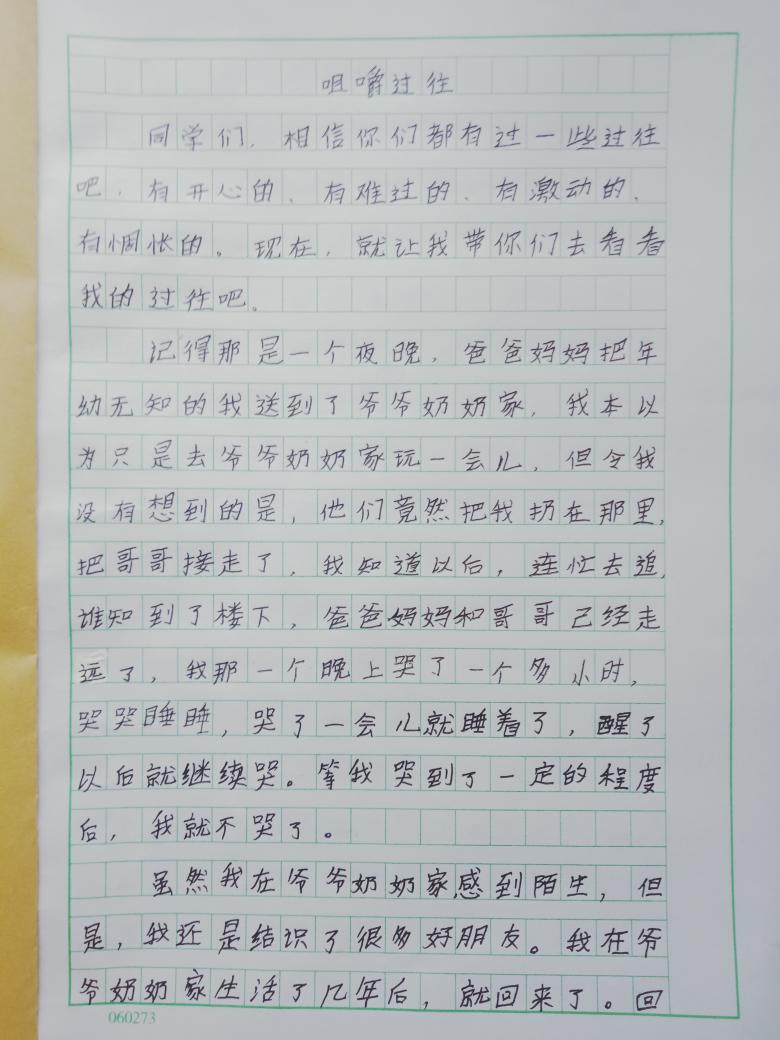 咀嚼过往
同学们，相信你们都有过一些过往
吧，有开心的、有难过的、有激动的、
有惆怅的。现在，就让我带你们去看看
我的过往吧。
记得那是一个夜晚，爸爸妈妈把年
幼无知的我送到了爷爷奶奶家，我本以
为只是去爷爷奶奶家玩一会儿，但令我
没有想到的是，他们竟然把我扔在那里，
把哥哥接走了，我知道以后，连忙去追，
谁知到了楼下，爸爸妈妈和哥哥已经走
远了，我那一个晚上哭了一个多小时，
哭哭睡睡，哭了一会儿就睡着了，醒了
以后就继续哭。等我哭到了一定的程度
后，我就不哭了。
虽然我在爷爷奶奶家感到陌生，但
是，我还是结识了很多好朋友。我在爷
爷奶奶家生活了几年后，就回来了。回
060273